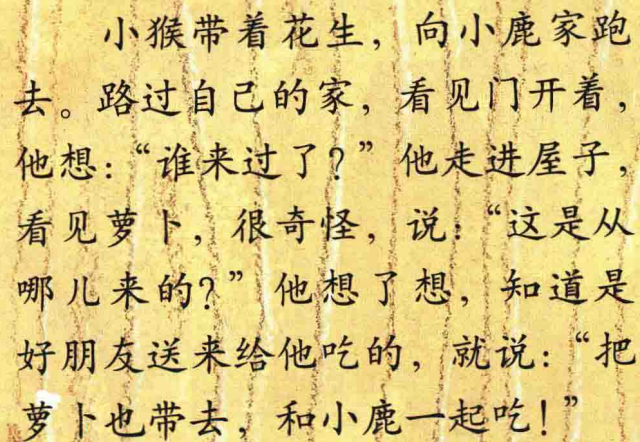 小猴带着花生，向小鹿家跑
去。路过自己的家，看见门开着，
他想：“谁来过了？”他走进屋子，
看见萝卜，很奇怪，说：“这是从
哪儿来的？”他想了想，知道是
好朋友送来给他吃的，就说：“把
萝卜也带去，和小鹿一起吃！”